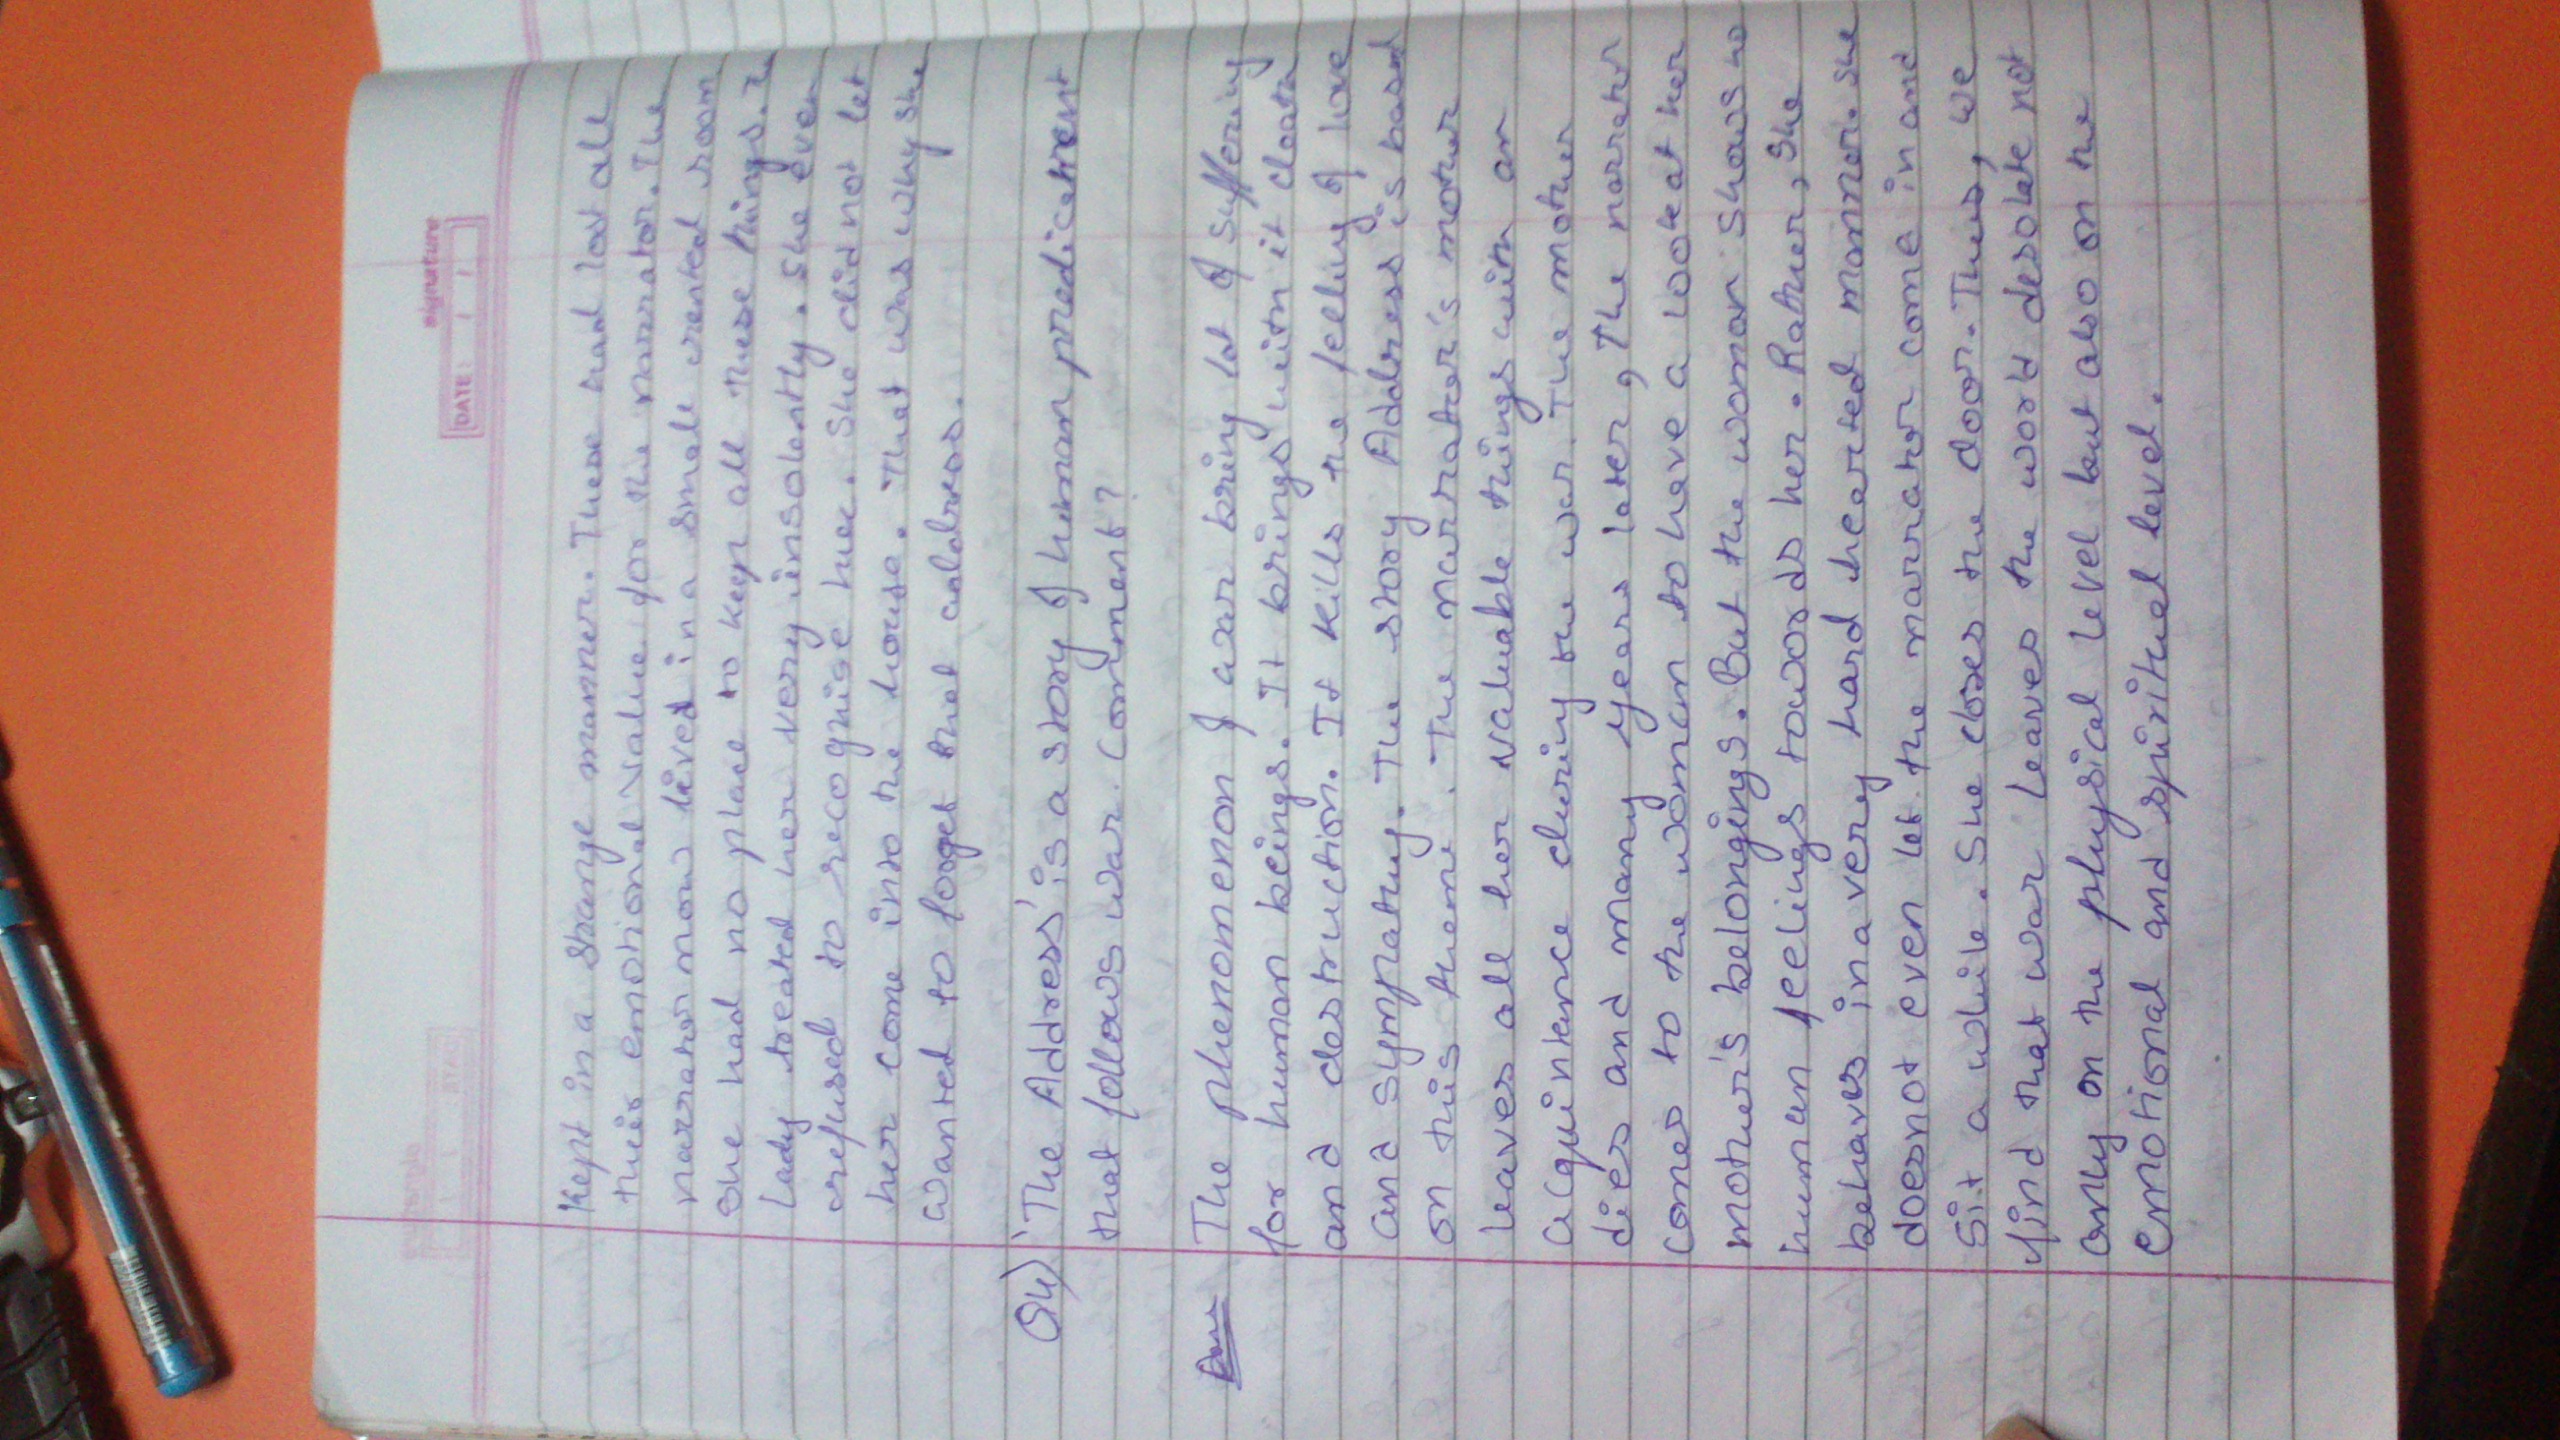 signature
DATE: / /
Kept in a strange manner. These had lost all
their emotional value for the narrator. The
narrator now lived in a small rented room
She had no place to keep all these things.
Lady treated her very insolently. She even
refused to recognise her. She did not let
her come into the house. That was why she
wanted to forget that address.
Q4) 'The Address' is a story of human predicament
that follows war. Comment?
Ans The phenomenon of war bring lot of suffering
for human beings. It brings with it death
and destruction. It kills the feeling of love
and sympathy. The story Address is based
on this theme. The narrator's mother
leaves all her valuable things with an
acquintance during the war. The mother
dies and many years later, The narrator
comes to the woman to have a look at her
mother's belongings. But the woman shows no
human feelings towords her. Rather, She
behaves in a very hard hearted manner. She
doesnot even let the narrator come in and
Sit a while. She closes the door. Thus, we
find that war leaves the world desolate not
only on the physical level but also on the
emotional and spiritual level.